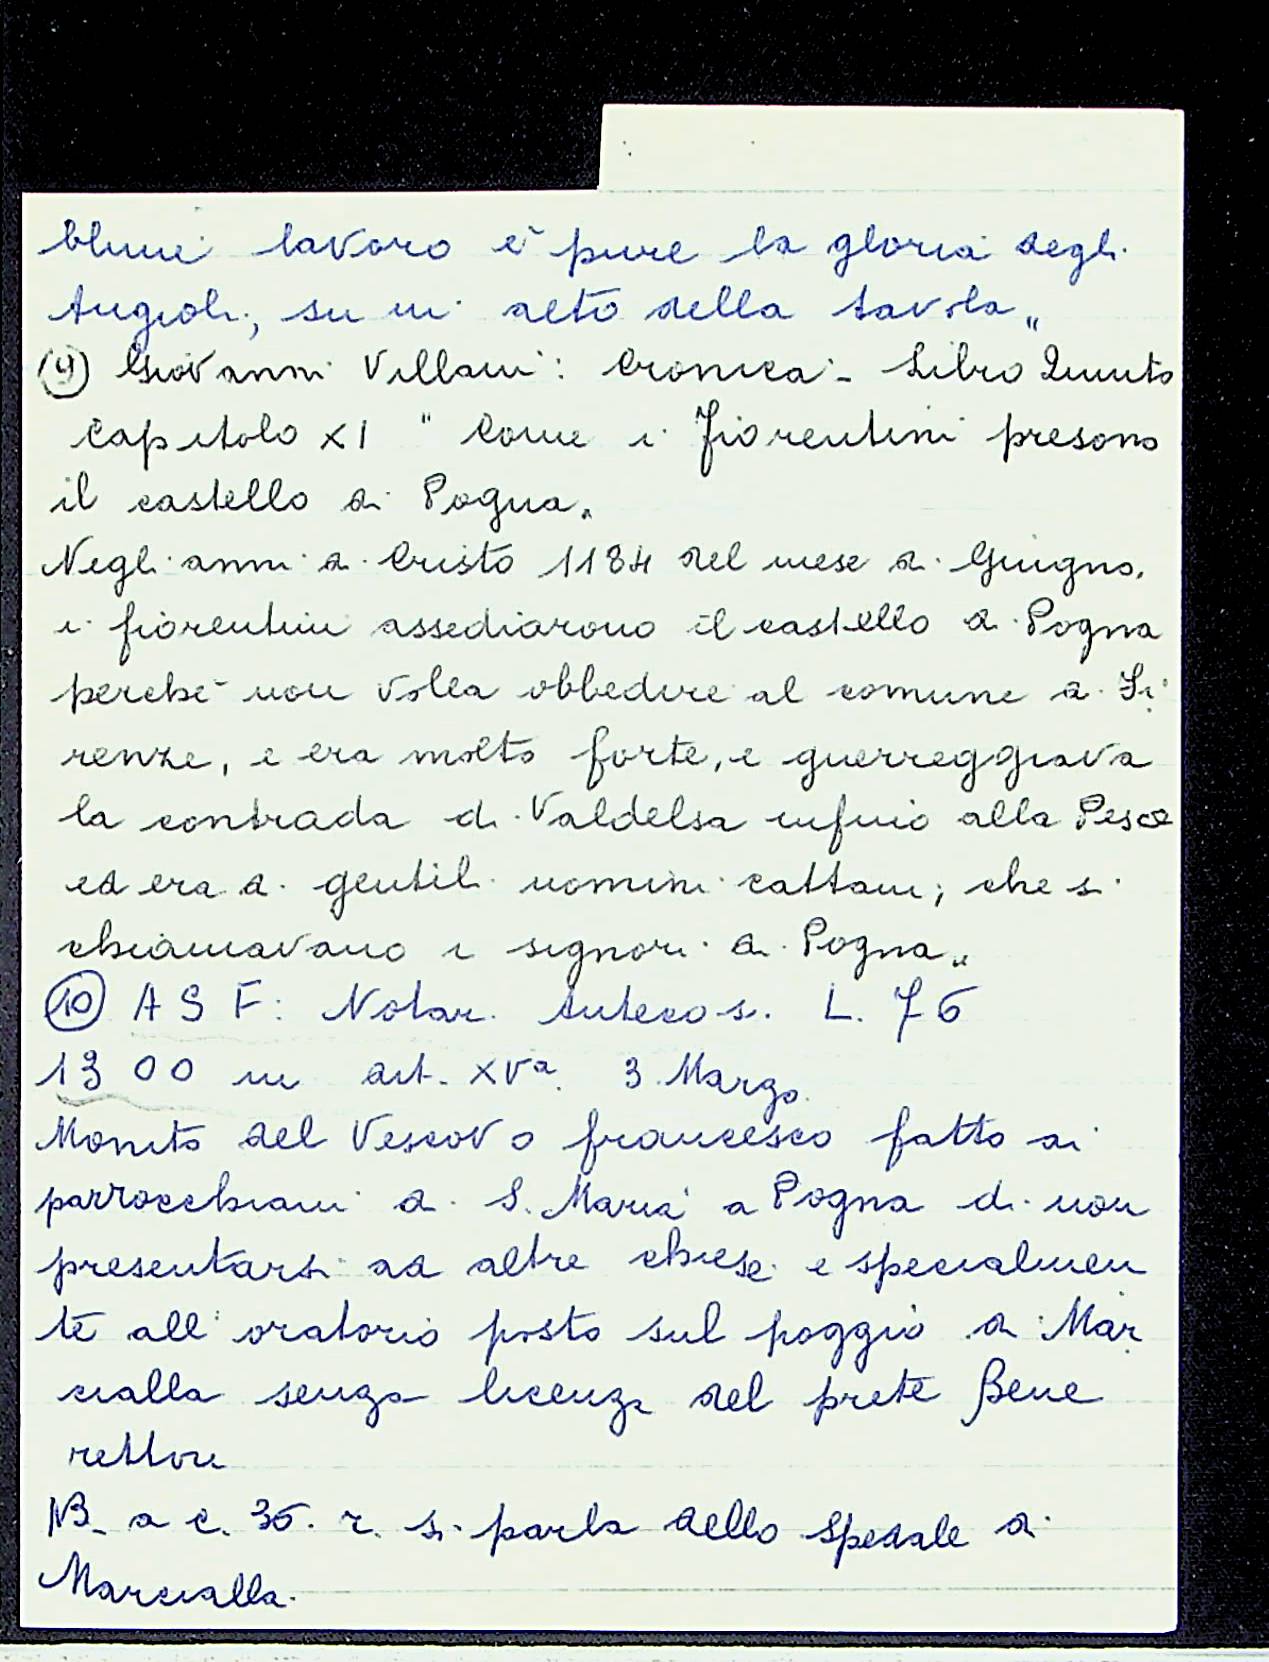 blimi lavoro è pure la gloria degli
Angioli, su in alto della tavola"
(9) Giovanni Villani: Cronica - Libro Quinto
Capitolo XI "Come i Fiorentini presono
il castello di Pogna"
Negli anni di Cristo 1184 del mese di Giugno,
i fiorentini assediarono il castello di Pogna
perchè non volea obbedire al comune di Fi
renze, e era molto forte, e guerreggiava
la contrada di Valdelsa infino alla Pesa
ed era di gentili uomini cattani, che si
chiamavano i signori di Pogna"
(10) A S F: Notar. Antecos. L. 76
1300 in art. XVa. 3 Marzo
Monito del Vescovo Francesco fatto ai
parrocchiani di S. Maria a Pogna di non
presentarsi ad altre chiese e specialmen
te all'oratorio posto sul poggio di Mar
cialla senza licenza del prete Bene
rettore
NB. a c. 36. r. si parla dello Spedale di
Marcialla.